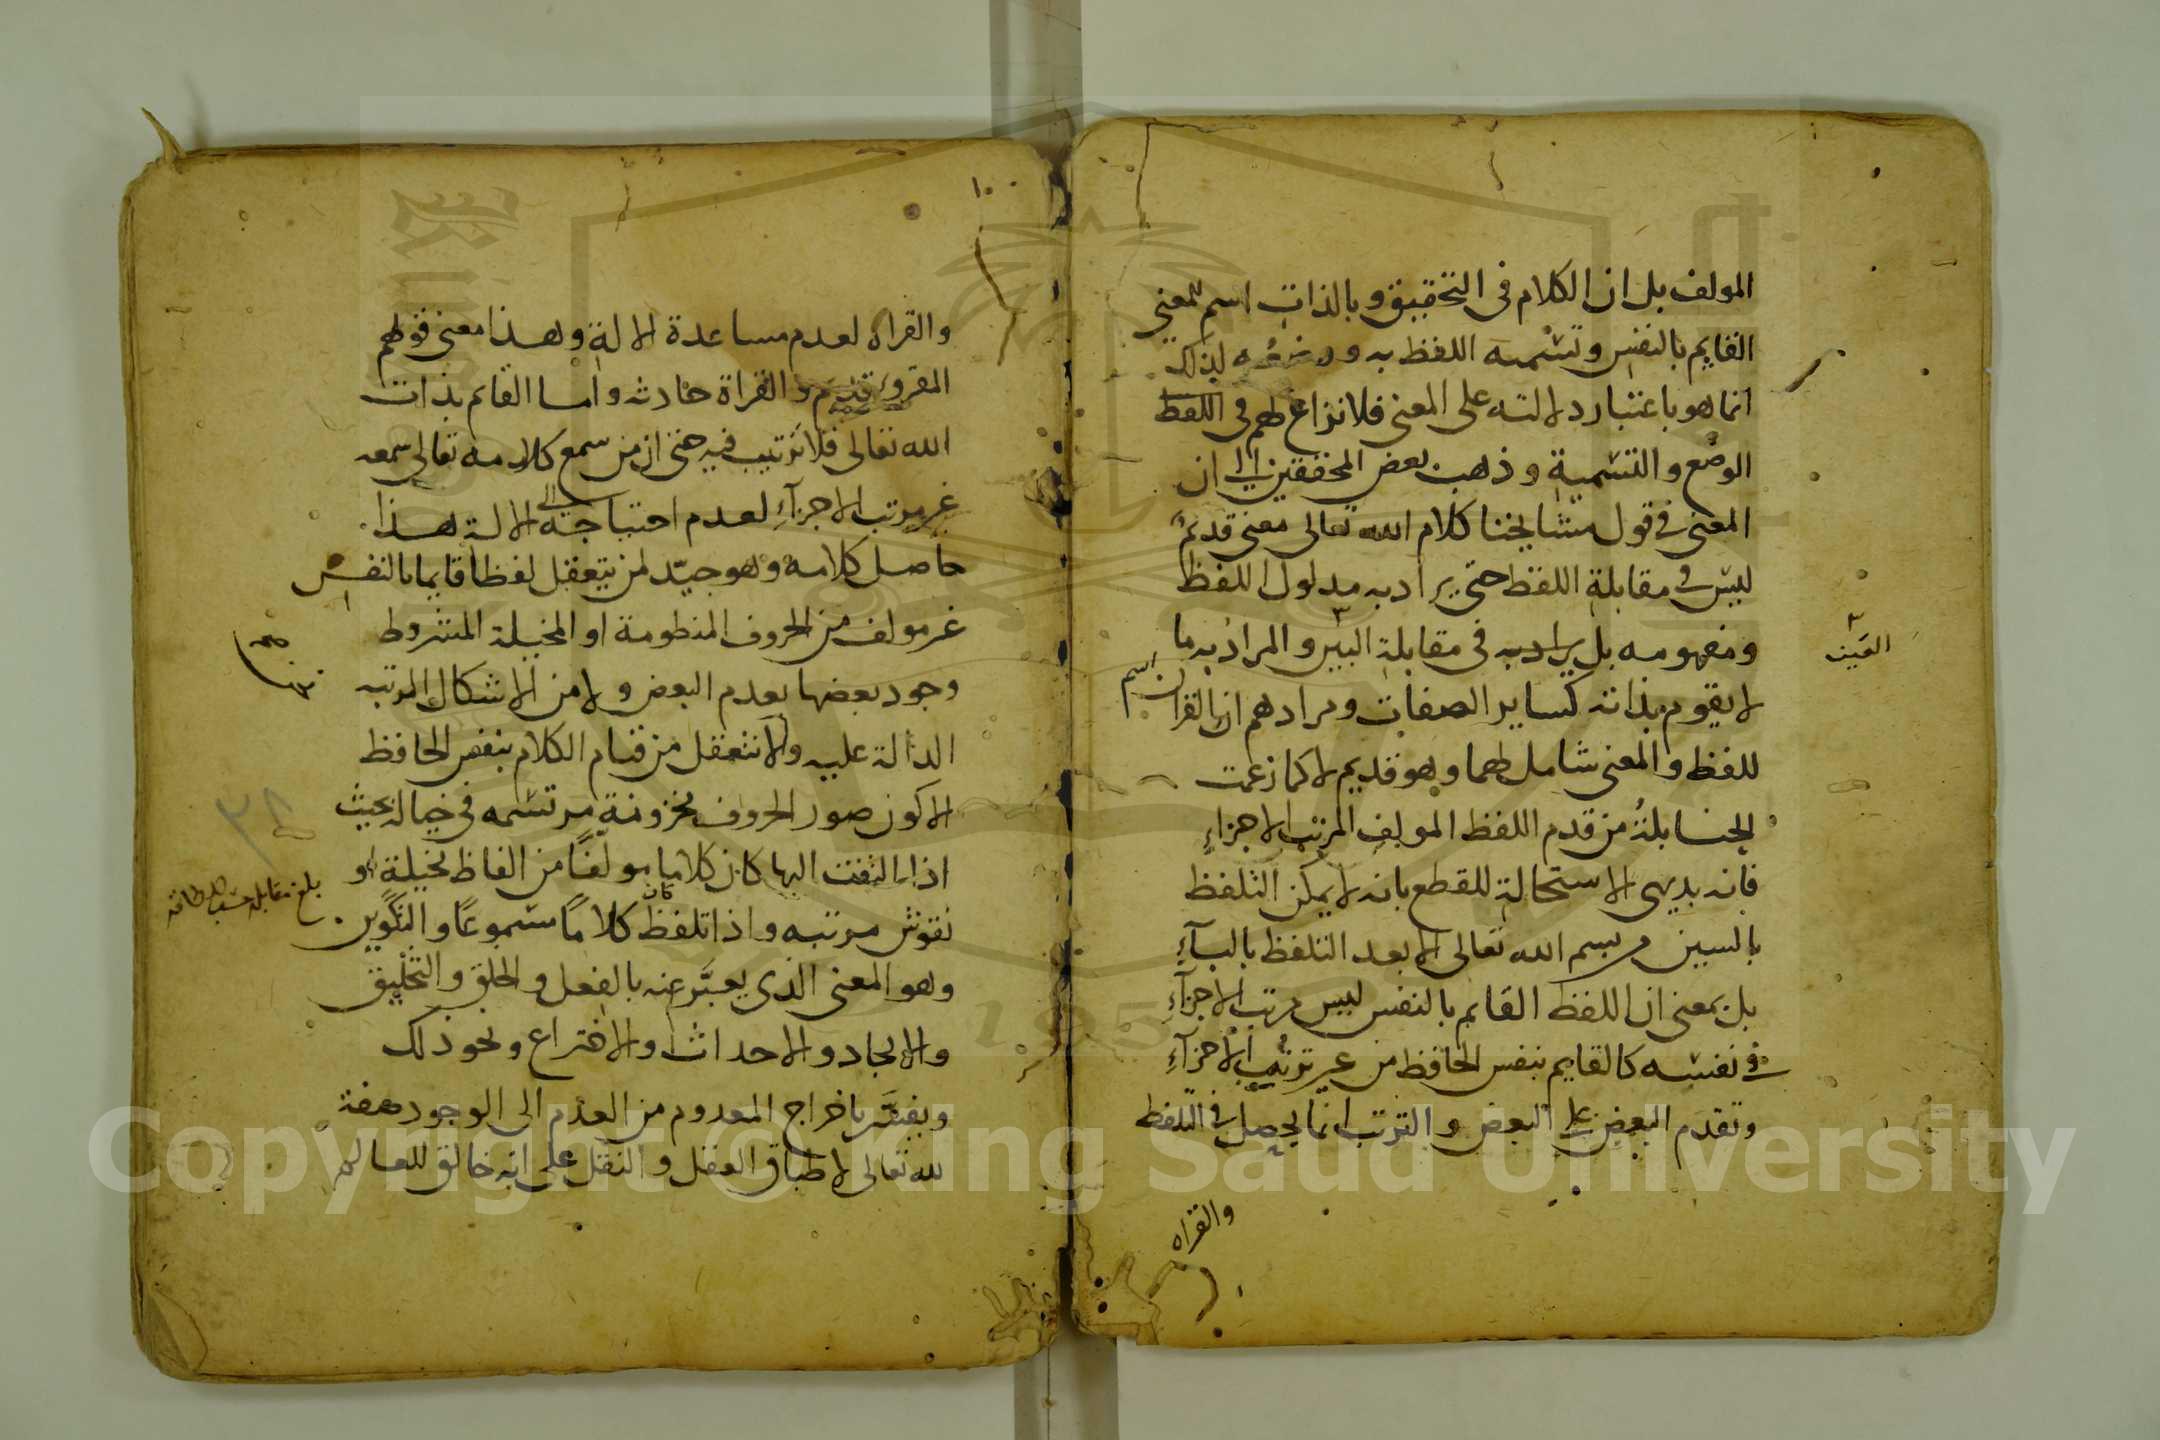 المولف بل ان الكلام في التحقيق وبالذات اسم للمعني
القايم بالنفس وتسميه اللفظ به ووضعه لذلك
انما هو باعتبار دلالته على المعنى فلا نزاع لهم في اللفظ
الوضع والتسمية وذهب بعض المحققين الى ان
المعنى في قول مشايخنا كلام الله تعالى معنى قديم
ليس في مقابلة اللفظ حتى يراد به مدلول اللفظ
ومفهومه بل يراد به في مقابلة البين والمراد به ما
العين
لا يقوم بذاته كساير الصفات ومرادهم ان القران اسم
للفظ والمعنى شامل لهما وهو قديم لا كما زعمت
الحنابلة من قدم اللفظ المولف المرتب الاجزاء
فانه بديهى الاستحالة للقطع بانه لا يمكن التلفظ
بالسين من بسم الله تعالى الا بعد التلفظ بالبآء
بل بمعنى ان اللفظ القايم بالنفس ليس مرتب الاجزآء
في نفسه كالقايم بنفس الحافظ من غير ترتب الاجزآء
وتقدم البعض على البعض والترتب انما يحصل في التلفظ
والقراه
١٠
والقراه لعدم مساعدة الالة وهذا معنى قولهم
المقروء قديم والقراة حادثه واما القايم بذات
الله تعالى فلا ترتيب فيه حتى ان من سمع كلامه تعالى سمعه
غير مرتب الاجزآء لعدم احتياجه الى الالة هذا
حاصل كلامه وهو جيد لمن يتعقل لفظا قايما بالنفس
غير مولف من الحروف المنطومة او المخيلة المشروط
وجود بعضها بعدم البعض ولا من الاشكال المرتبه
الدالة عليه ولا نتعقل من قيام الكلام بنفس الحافظ
الا كون صور الحروف مخزونة مرتسمه في خياله بحيث
٣٨
اذا التفت اليها كان كلاما مولفا من الفاظ مخيلة او
بلغ مقابله حسب الطاقه
نقوش مرتبه واذا تلفظ كان كلاما مسموعا والتكوين
وهو المعنى الذى يعبر عنه بالفعل والخلق والتخليق
والايجاد والاحداث والاختراع ونحو ذلك
ويفسر باخراج المعدوم من العدم الى الوجود صفة
لله تعالى لاطباق العقل والنقل على انه خالق للعالم
Copyright © King Saud University
1957